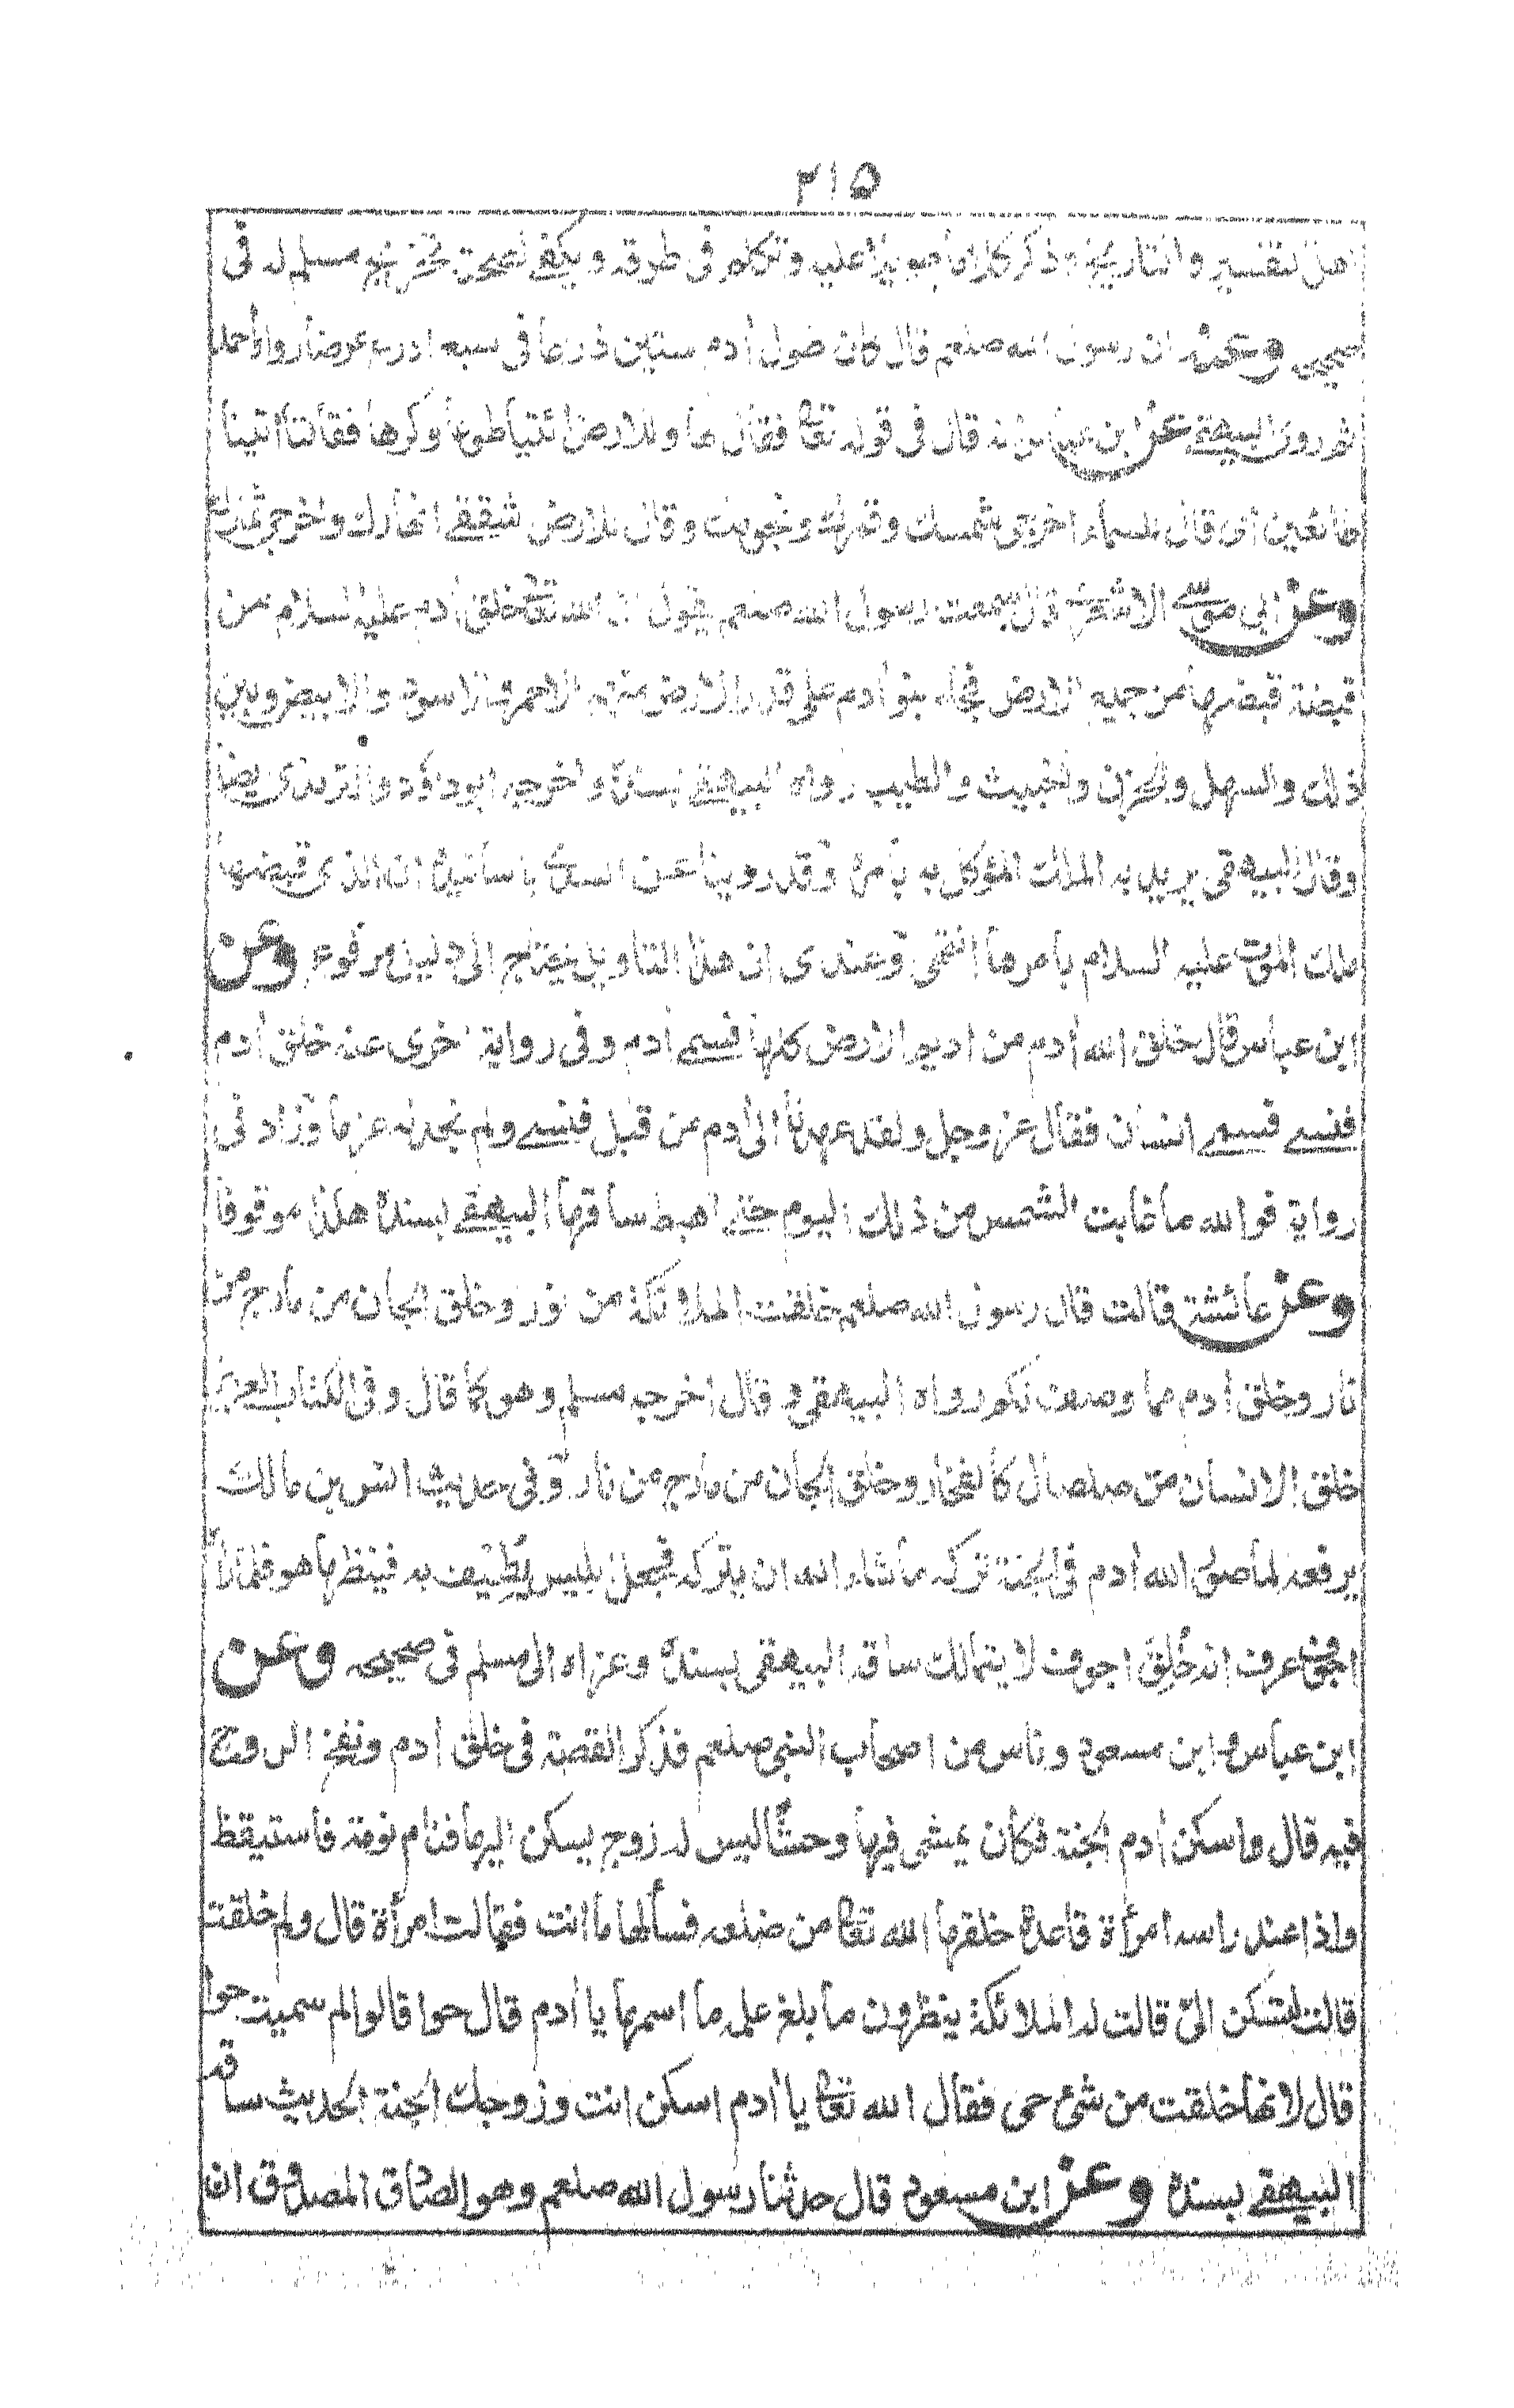 ٢١٥
اهل التفسير والتاريخ وذكر كلاما طويلا عليه وتكلم فى طرقه ويكفى لصحته تخريج مسلم له فى
صحيحه وعنه ان رسول الله صلعم قال كان طول أدم ستين ذراعا فى سبعة اذرع عرضا رواه أحمد
ثم روى البيهقى عن ابن عباس انه قال فى قوله تعا فقال لها وللارض ائتيا طوعا وكرها قالتا اتينا
طائعين اى قال للسماء اخرجى شمسك وقمرك ونجومك وقال للارض شققى انهارك واخرجى ثمارك
وعن ابى موسى الاشعرى قال سمعت رسول الله صلعم يقول ان الله تعا خلق أدم عليه السلام من
قبضة قبضها من جميع الارض فجاء بنو أدم على قدر الارض منهم الاحمر والاسود والابيض وبين
ذلك والسهل والحزن والخبيث والطيب رواه البيهقى بسنده واخرجه ابوداؤد والترمذى ايضا
وقال البيهقى يريد به الملك المؤكل به بأمره وقد روينا عن السدى باسانيده انه الذى قبضها
ملك الموت عليه السلام بأمرها انتهى وعندى ان هذا التاويل يحتاج الى دليل مرفوع وعن
ابن عباس قال خلق الله أدم من اديم الارض كلها فسمى أدم وفى رواية اخرى عنه خلق أدم
فنسى فسمى انسان فقال عز وجل ولقد عهدنا الى أدم من قبل فنسى ولم نجد له عزما وزاد فى
رواية فوالله ما غابت الشمس من ذلك اليوم حتى اهبط ساقها البيهقى بسنده هكذا موقوفا
وعن عائشة قالت قال رسول الله صلعم خلقت الملائكة من نور وخلق الجان من مارج من
نار وخلق أدم مما وصف لكم رواه البيهقى وقال اخرجه مسلم وهو كما قال وفى الكتاب العزيز
خلق الانسان من صلصال كالفخار وخلق الجان من مارج من نار وفى حديث انس بن مالك
يرفعه لما صور الله أدم فى الجنة تركه ما شاء الله ان يتركه فجعل ابليس يُطِيْف به فينظر ما هو فلما راٰ
اجوف عرف انه خُلِقَ اجوف لا يتمالك ساقه البيهقى بسنده وعزاه الى مسلم فى صحيحه وعن
ابن عباس وابن مسعود وناس من اصحاب النبى صلعم فذكر القصة فى خلق أدم ونفخ الروح
فيه قال واسكن أدم الجنة فكان يمشى فيها وحشًا ليس له زوج يسكن اليها فنام نومة فاستيقظ
واذا عند راسه امرأة قاعدة خلقها الله تعا من ضلعه فسألها ما انت فقالت امرأة قال ولم خلقت
قالت لتسكن الىّ قالت له الملائكة ينظرون ما بلغ علمه ما اسمها يا أدم قال حوا قالوا لم سميت حوا
قال لانها خلقت من شئ حى فقال الله تعا يا أدم اسكن انت وزوجك الجنة الحديث ساقه
البيهقى بسنده وعن ابن مسعود قال حدثنا رسول الله صلعم وهو الصادق المصدوق ان